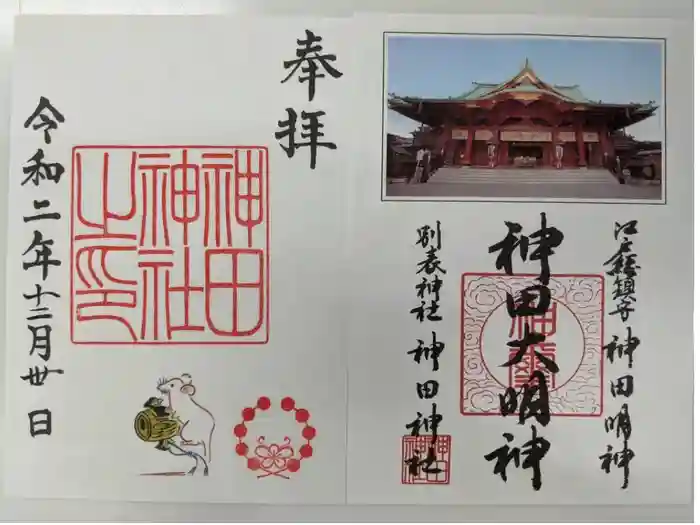 奉拝
神田
神社
之印
令和二年十二月卅日
江戸総鎮守 神田明神
神田大明神
別表神社 神田神社
神田
神社